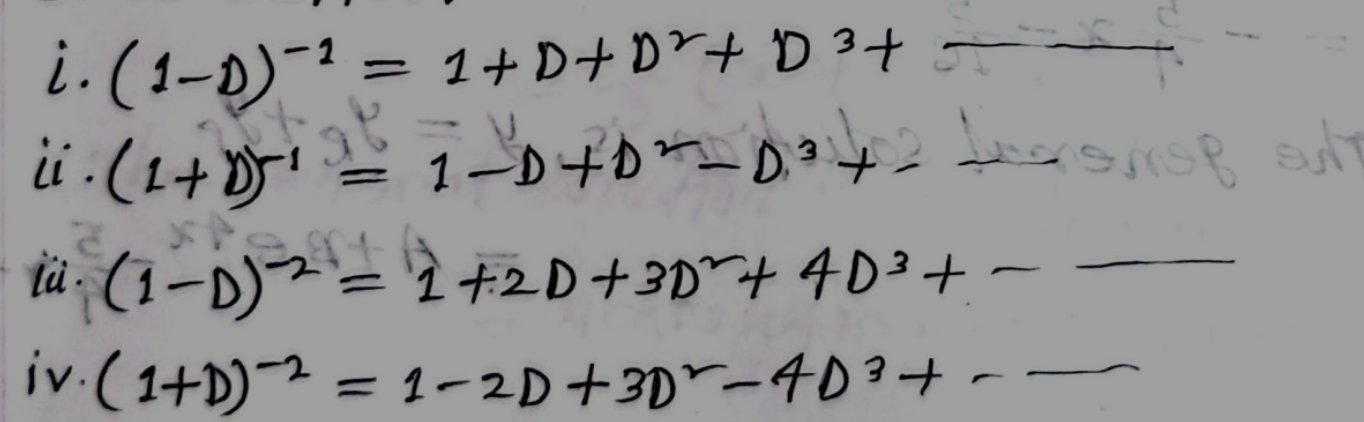 i. (1-D)⁻¹ = 1+D+D²+D³+ ———
ii. (1+D)⁻¹ = 1-D+D²-D³+- ——
iii. (1-D)⁻² = 1+2D+3D²+4D³+- ——
iv. (1+D)⁻² = 1-2D+3D²-4D³+-——